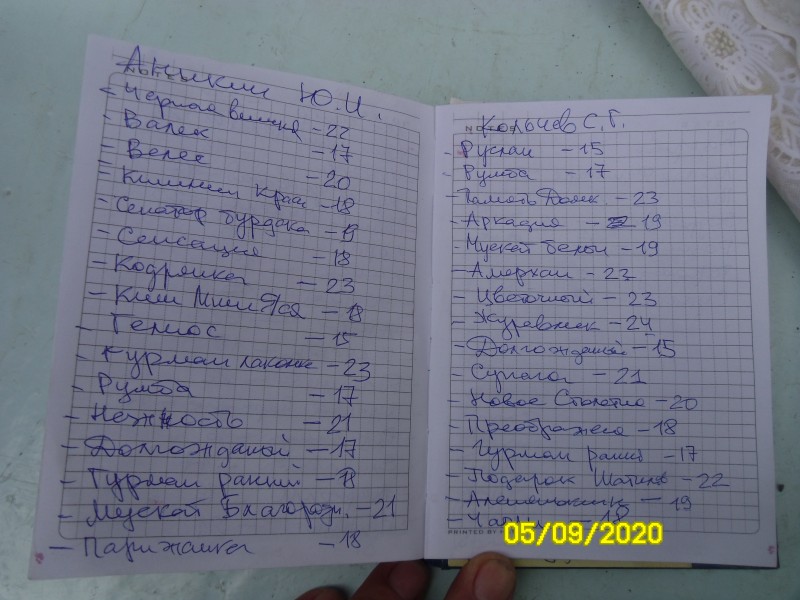 Аникин Ю.И.
- Черная вишня - 22
- Валек - 17
- Велес - 20
- Кишмиш Крас - 18
- Сенатор Бурдака - 19
- Сенсация - 18
- Кодрянка - 23
- Киш Мици - 18
- Гелиос - 15
- Гурман лакомк - 23
- Румба - 17
- Нежность - 21
- Долгожданый - 17
- Гурман раний - 18
- Мускат Благоразн. - 21
- Парижанка - 18
Колычев С.Г.
- Руслан - 15
- Румба - 17
- Память Домк - 23
- Аркадия - 19
- Мускат белый - 19
- Амерхан - 22
- Цветочный - 23
- Журавлик - 24
- Долгожданый - 15
- Супага - 21
- Новое Столетие - 20
- Преображен - 18
- Гурман раний - 17
- Подарок - 22
- Алешенькин - 19
PRINTED BY
05/09/2020